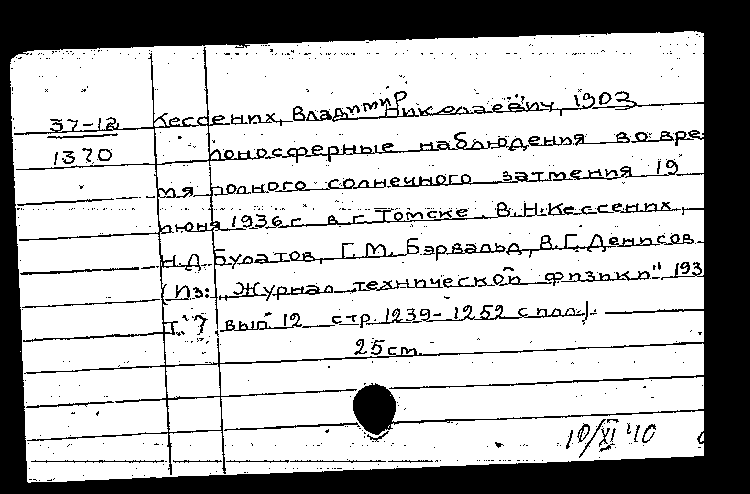 37-12 Кессених, Владимир Николаевич, 1903
1370 Ионосферные наблюдения во вре-
мя полного солнечного затмения 19
июня 1936 г. в г. Томске. В.Н. Кессених,
Н.Д. Булатов, Г.М. Бэрвальд, В.Г. Денисов.
(Из: „Журнал технической физики" 193
Т. 7. вып. 12 стр. 1239-1252 с илл.).
25 см.
10/XI 40